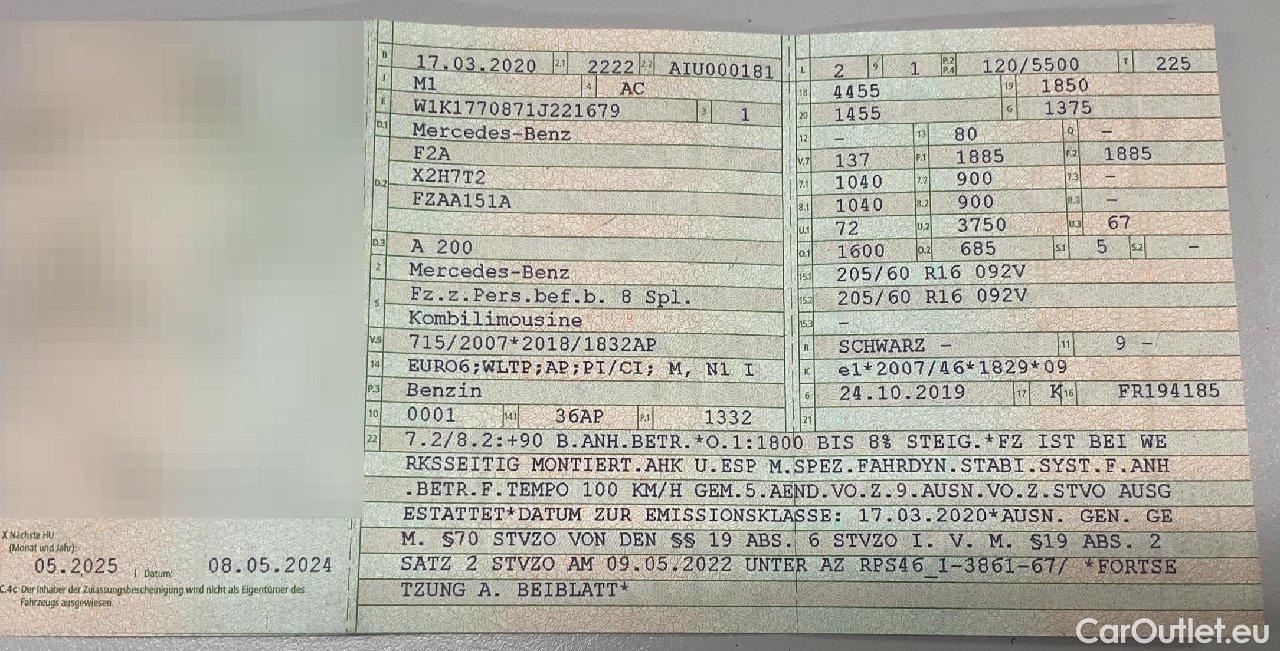 B 17.03.2020 2.1 2222 2.2 AIU000181
J M1 4 AC
E W1K1770871J221679 3 1
D.1 Mercedes-Benz
F2A
D.2 X2H7T2
FZAA151A
D.3 A 200
2 Mercedes-Benz
5 Fz.z.Pers.bef.b. 8 Spl.
Kombilimousine
V.9 715/2007*2018/1832AP
14 EURO6;WLTP;AP;PI/CI; M, N1 I
P.3 Benzin
10 0001 14.1 36AP P.1 1332
L 2 9 1 P.2 P.4 120/5500 T 225
18 4455 19 1850
20 1455 G 1375
12 – 13 80 Q –
V.7 137 F.1 1885 F.2 1885
7.1 1040 7.2 900 7.3 –
8.1 1040 8.2 900 8.3 –
U.1 72 U.2 3750 U.3 67
O.1 1600 O.2 685 S.1 5 S.2 –
15.1 205/60 R16 092V
15.2 205/60 R16 092V
15.3 –
R SCHWARZ – 11 9 –
K e1*2007/46*1829*09
6 24.10.2019 17 K 16 FR194185
21
22 7.2/8.2:+90 B.ANH.BETR.*O.1:1800 BIS 8% STEIG.*FZ IST BEI WE
RKSSEITIG MONTIERT.AHK U.ESP M.SPEZ.FAHRDYN.STABI.SYST.F.ANH
.BETR.F.TEMPO 100 KM/H GEM.5.AEND.VO.Z.9.AUSN.VO.Z.STVO AUSG
ESTATTET*DATUM ZUR EMISSIONSKLASSE: 17.03.2020*AUSN. GEN. GE
M. §70 STVZO VON DEN §§ 19 ABS. 6 STVZO I. V. M. §19 ABS. 2
SATZ 2 STVZO AM 09.05.2022 UNTER AZ RPS46_1-3861-67/ *FORTSE
TZUNG A. BEIBLATT*
X Nächste HU
(Monat und Jahr):
05.2025 I Datum: 08.05.2024
C.4c Der Inhaber der Zulassungsbescheinigung wird nicht als Eigentümer des
Fahrzeugs ausgewiesen.
CarOutlet.eu